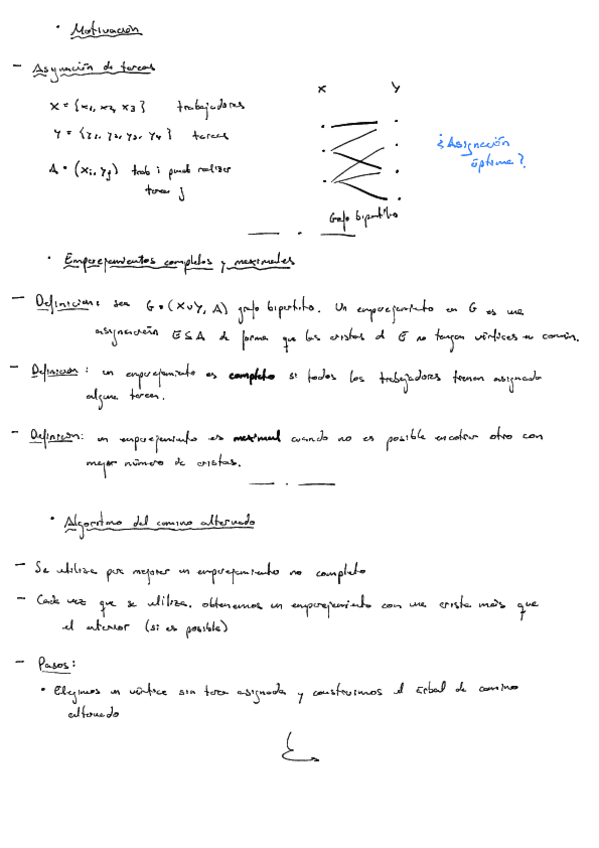 · Motivación
- Asignación de tareas
X = {x1, x2, x3} trabajadores
Y = {y1, y2, y3, y4} tareas
A = (xi, yj) trab i puede realizar
tarea j
X Y
¿Asignación
óptima?
Grafo bipartito
· Emparejamientos completos y maximales
- Definición: sea G = (X∪Y, A) grafo bipartito. Un emparejamiento en G es una
asignación E⊆A de forma que las aristas d E no tengan vértices en común.
- Definición: un emparejamiento es completo si todos los trabajadores tienen asignada
alguna tarea.
- Definición: un emparejamiento es maximal cuando no es posible encontrar otro con
mayor número de aristas.
· Algoritmo del camino alternado
- Se utiliza para mejorar un emparejamiento no completo
- Cada vez que se utiliza, obtenemos un emparejamiento con una arista más que
el anterior (si es posible)
- Pasos:
• Elegimos un vértice sin tarea asignada y construimos el árbol de camino
alternado